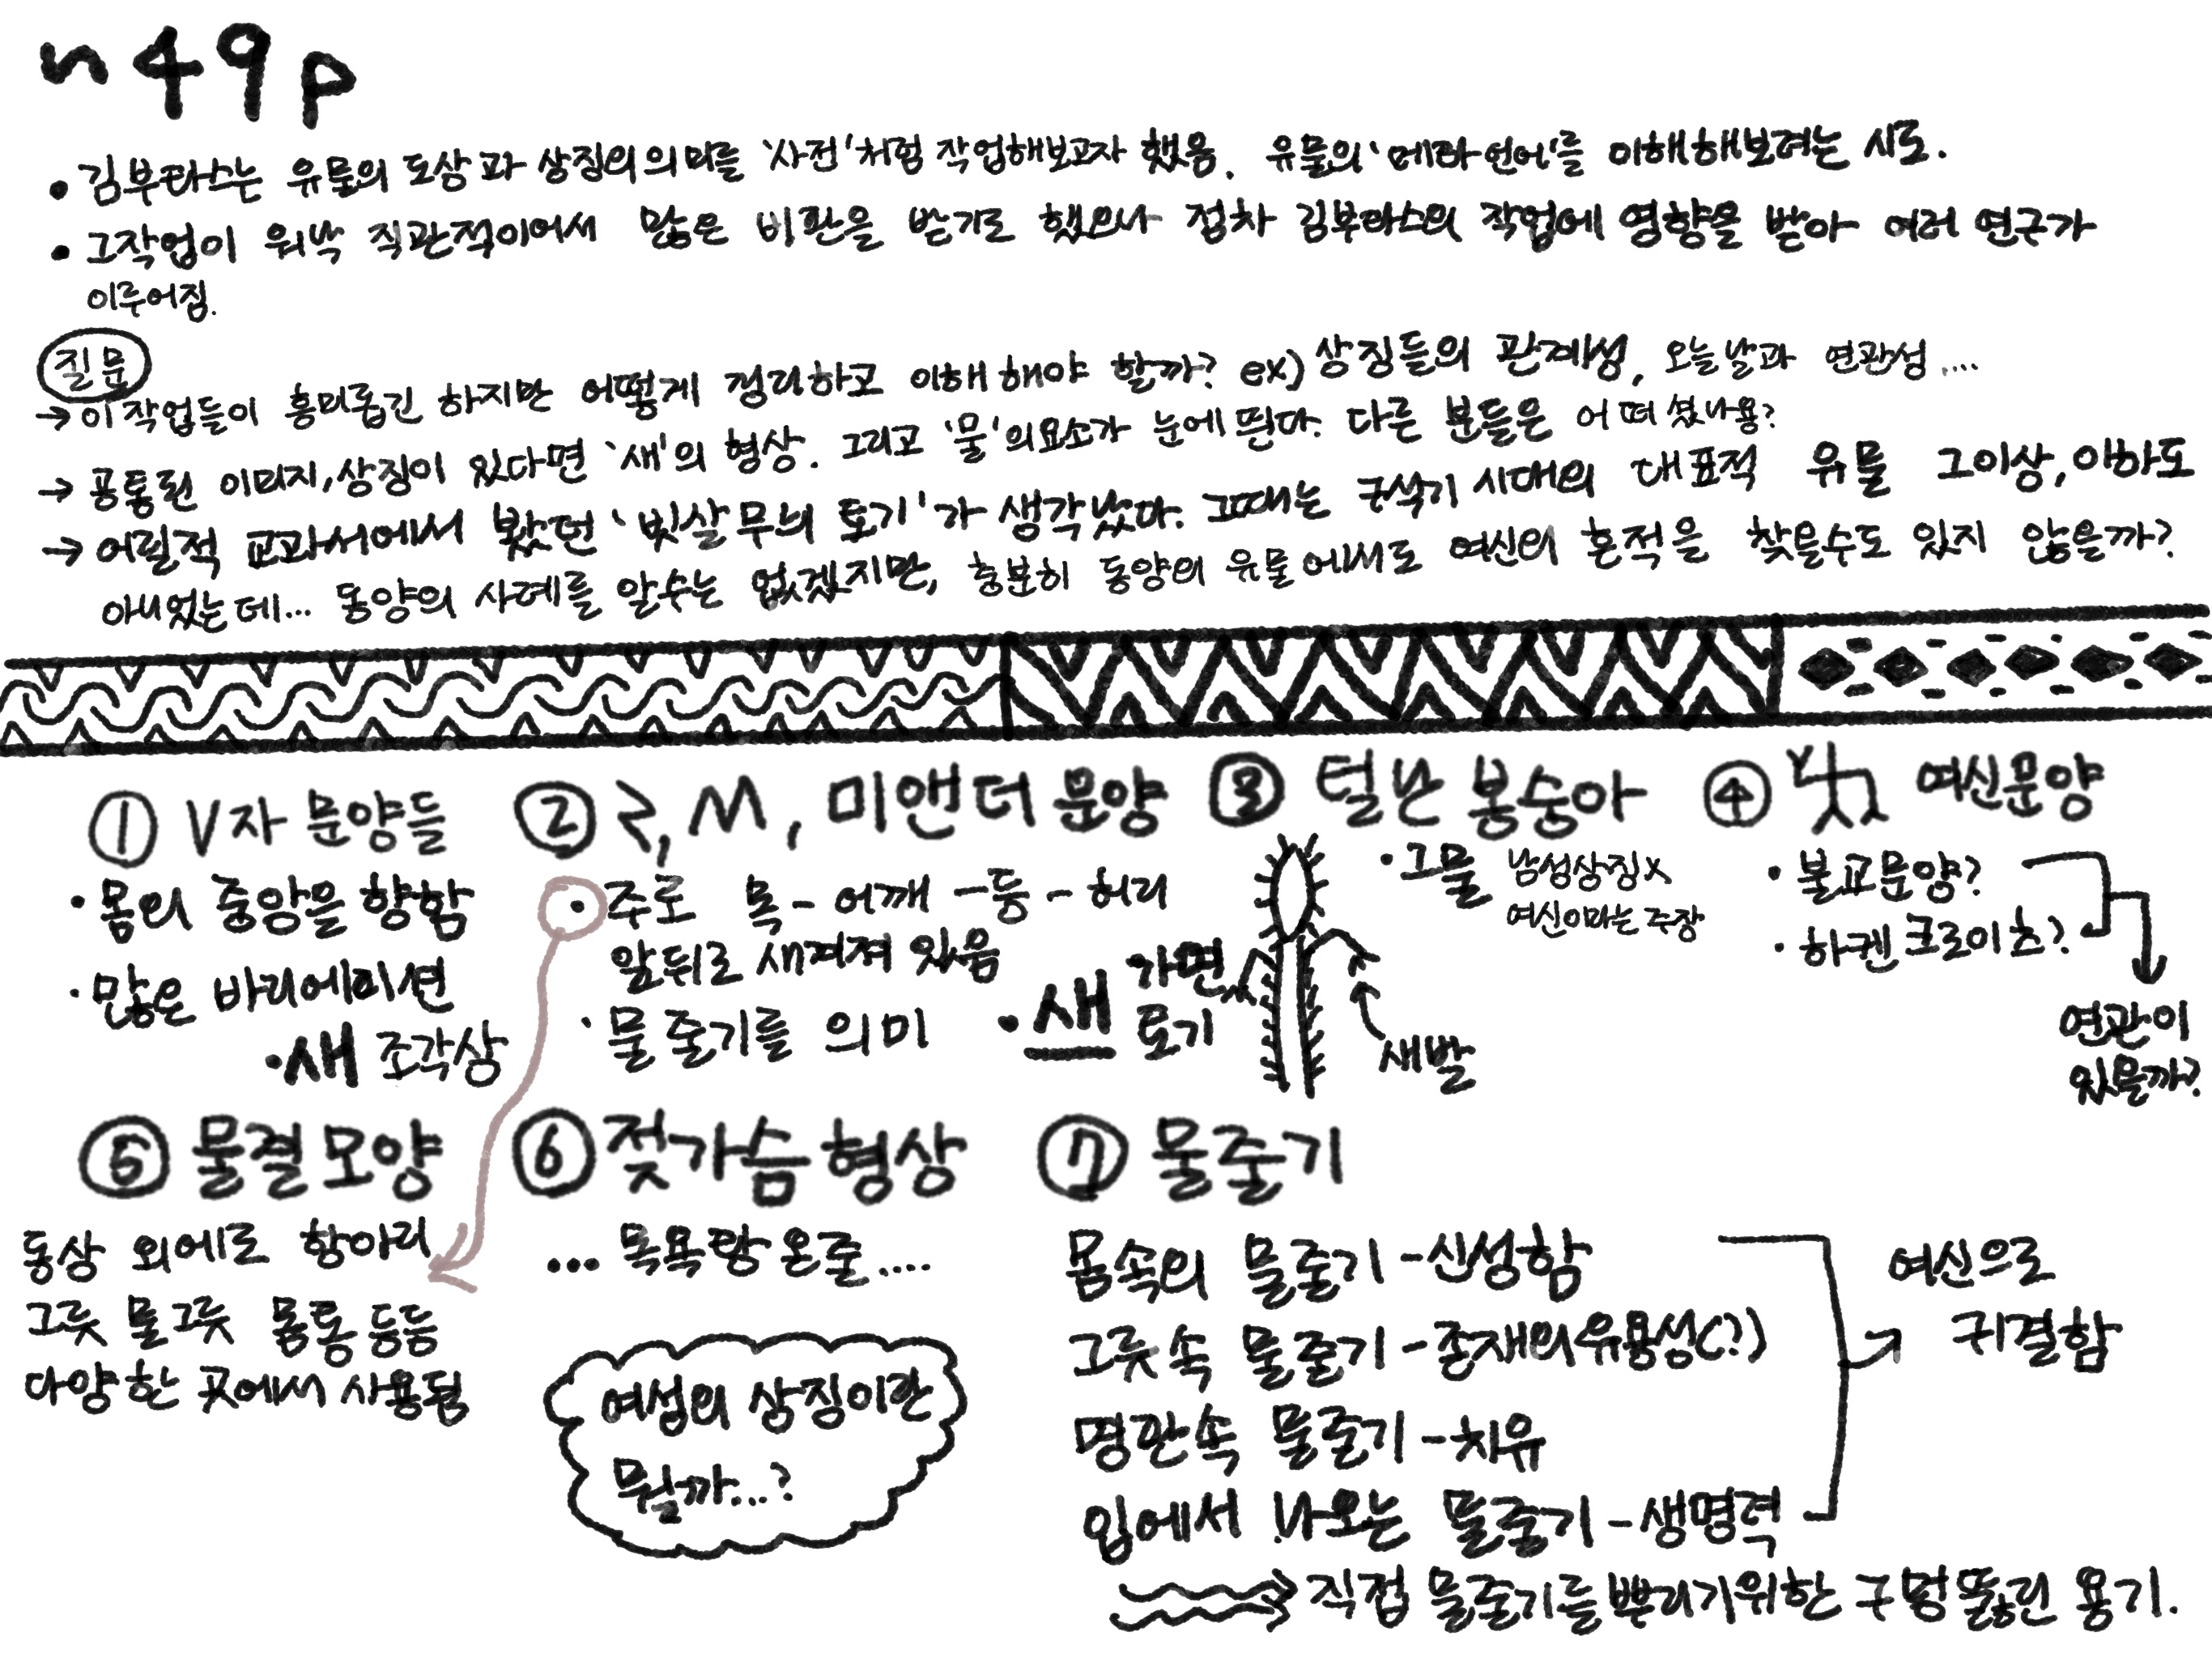 ~49p
• 김부타스는 유물의 도상과 상징의 의미를 '사전'처럼 작업해보고자 했음. 유물의 '메타언어'를 이해해보려는 시도.
• 그작업이 워낙 직관적이어서 많은 비판을 받기도 했으나 점차 김부타스의 작업에 영향을 받아 여러 연구가
이루어짐.
질문
→ 이작업들이 흥미롭긴 하지만 어떻게 정리하고 이해해야 할까? ex) 상징들의 관계성, 오늘날과 연관성....
→ 공통된 이미지, 상징이 있다면 '새'의 형상. 그리고 '물'의요소가 눈에 띈다. 다른 분들은 어떠셨나용?
→ 어릴적 교과서에서 봤던 '빗살무늬 토기'가 생각났다. 그때는 구석기 시대의 대표적 유물 그이상, 이하도
아니었는데... 동양의 사례를 알수는 없겠지만, 충분히 동양의 유물에서도 여신의 흔적을 찾을수도 있지 않을까?
① V자 문양들
• 몸의 중앙을 향함
• 많은 바리에이션
• 새 조각상
② ㄹ, M, 미앤더 문양
• 주로 목 - 어깨 - 등 - 허리
앞뒤로 새겨져 있음
• 물줄기를 의미
• 새 가면
토기
③ 털난 봉숭아
• 그물 남성상징X
여신이라는 주장
새발
④ 여신문양
• 불교문양?
• 하켄크로이츠?
연관이
있을까?
⑤ 물결모양
동상 외에로 항아리
그릇 물그릇 몸통 등등
다양한 곳에서 사용됨
⑥ 젖가슴 형상
... 목욕탕온줄....
여성의 상징이란
뭘까...?
⑦ 물줄기
몸속의 물줄기 - 신성함
그릇속 물줄기 - 존재의유용성(?)
명판속 물줄기 - 치유
입에서 나오는 물줄기 - 생명력
여신으로
귀결함
직접 물줄기를 뿌리기위한 구멍뚫린 용기.